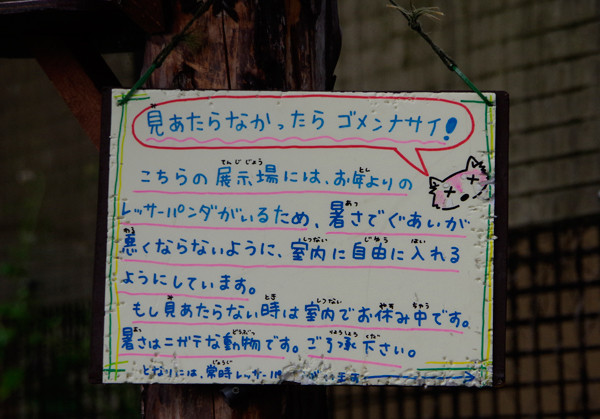 見あたらなかったら ゴメンナサイ!
こちらの展示場には、お年よりの
レッサーパンダがいるため、暑さでぐあいが
悪くならないように、室内に自由に入れる
ようにしています。
もし見あたらない時は室内でお休み中です。
暑さはニガテな動物です。ご了承下さい。
となりには、常時レッサーパ が ます